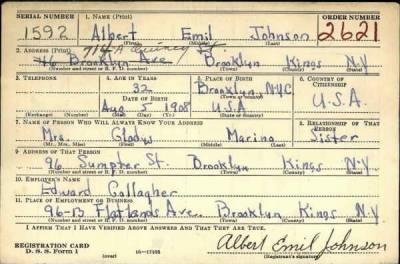 SERIAL NUMBER 1. NAME (Print) ORDER NUMBER
1592 Albert Emil Johnson 2621
(First) (Middle) (Last)
2. ADDRESS (Print) 714A Quincy St.
46 Brooklyn Ave Brooklyn Kings N.Y
(Number and street or R. F. D. number) (Town) (County) (State)
3. TELEPHONE 4. AGE IN YEARS 5. PLACE OF BIRTH 6. COUNTRY OF CITIZENSHIP
32 Brooklyn NYC
DATE OF BIRTH (Town or county) U.S.A.
Aug 5 1908 U.S.A
(Exchange) (Number) (Mo.) (Day) (Yr.) (State or country)
7. NAME OF PERSON WHO WILL ALWAYS KNOW YOUR ADDRESS 8. RELATIONSHIP OF THAT PERSON
Mrs. Gladys Marino Sister
(Mr., Mrs., Miss) (First) (Middle) (Last)
9. ADDRESS OF THAT PERSON
96 Sumpter St. Brooklyn Kings N.Y.
(Number and street or R. F. D. number) (Town) (County) (State)
10. EMPLOYER'S NAME
Edward Gallagher
11. PLACE OF EMPLOYMENT OR BUSINESS
96-13 Flatlands Ave. Brooklyn Kings N.Y
(Number and street or R. F. D. number) (Town) (County) (State)
I AFFIRM THAT I HAVE VERIFIED ABOVE ANSWERS AND THAT THEY ARE TRUE.
REGISTRATION CARD
D. S. S. Form 1 (over) 16-17105 Albert Emil Johnson
(Registrant's signature)